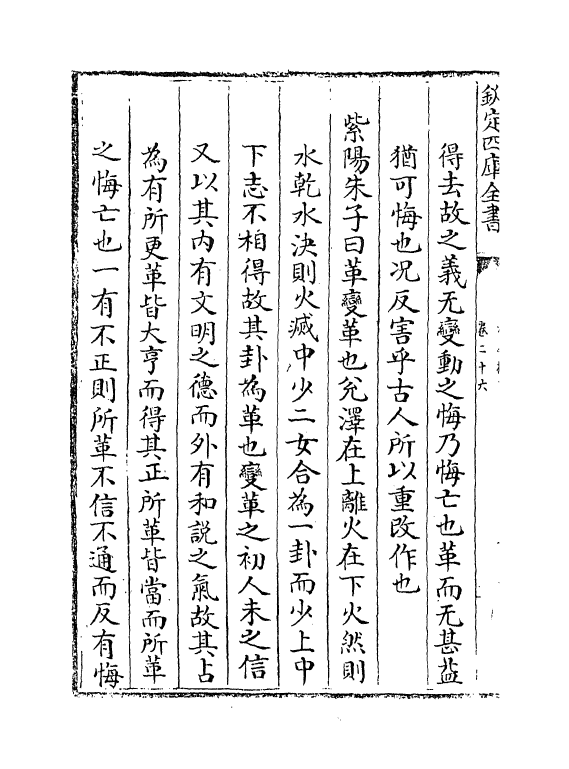 欽定四庫全書
卷二十六
得去故之義无變動之悔乃悔亡也革而无甚益
猶可悔也况反害乎古人所以重改作也
紫陽朱子曰革變革也兊澤在上離火在下火然則
水乾水決則火滅中少二女合為一卦而少上中
下志不相得故其卦為革也變革之初人未之信
又以其内有文明之德而外有和説之氣故其占
為有所更革皆大亨而得其正所革皆當而所革
之悔亡也一有不正則所革不信不通而反有悔